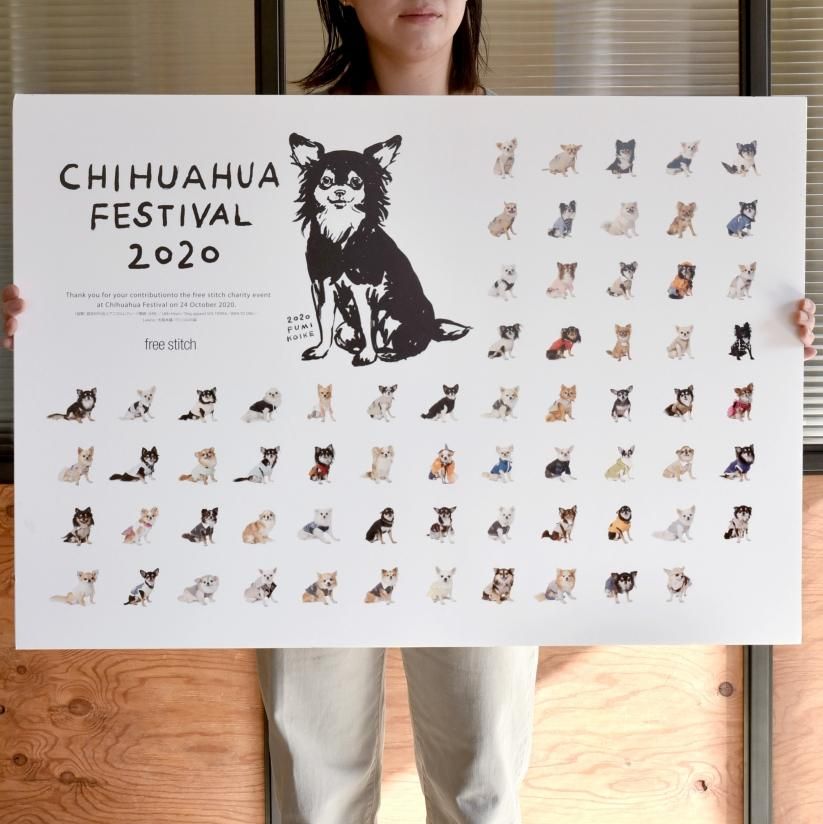 CHIHUAHUA
FESTIVAL
2020
Thank you for your contributionto the free stitch charity event
at Chihuahua Festival on 24 October 2020.
free stitch
2020
FUMI
KOIKE